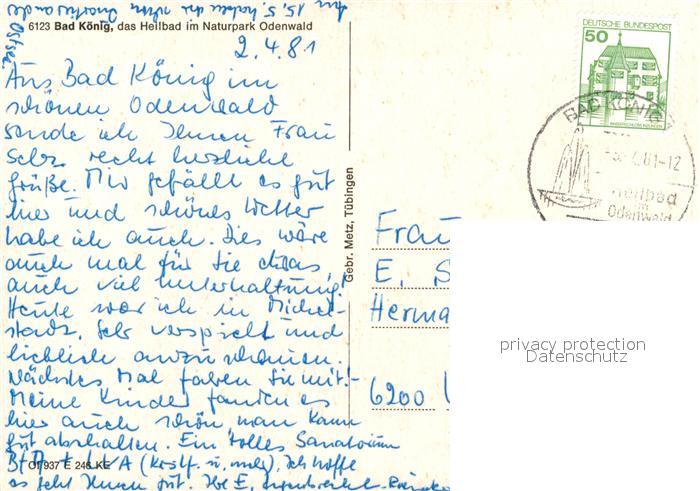 6123 Bad König, das Heilbad im Naturpark Odenwald
2.4.81
Aus Bad König im
schönen Odenwald
sende ich Ihnen Frau
recht herzliche
Grüße. Mir gefällt es gut
hier und schönes Wetter
habe ich auch. Dies wäre
auch mal für Sie etwas,
auch viel Unterhaltung!
Heute war ich in Michel-
stadt. Sehr verspielt und
lieblich anzuschauen.
Nächstes Mal fahren Sie mit!
Meine Kinder fanden es
hier auch schön, man kann
gut abschalten. Ein tolles Sanatorium
BfA + LVA
Ich hoffe
es geht Ihnen gut. Ihre E.
O1 937 E 246 KE
Gebr. Metz, Tübingen
DEUTSCHE BUNDESPOST
50
BAD KÖNIG
81-12
Heilbad
im
Odenwald
Frau
E. S
Herma
6200
privacy protection
Datenschutz